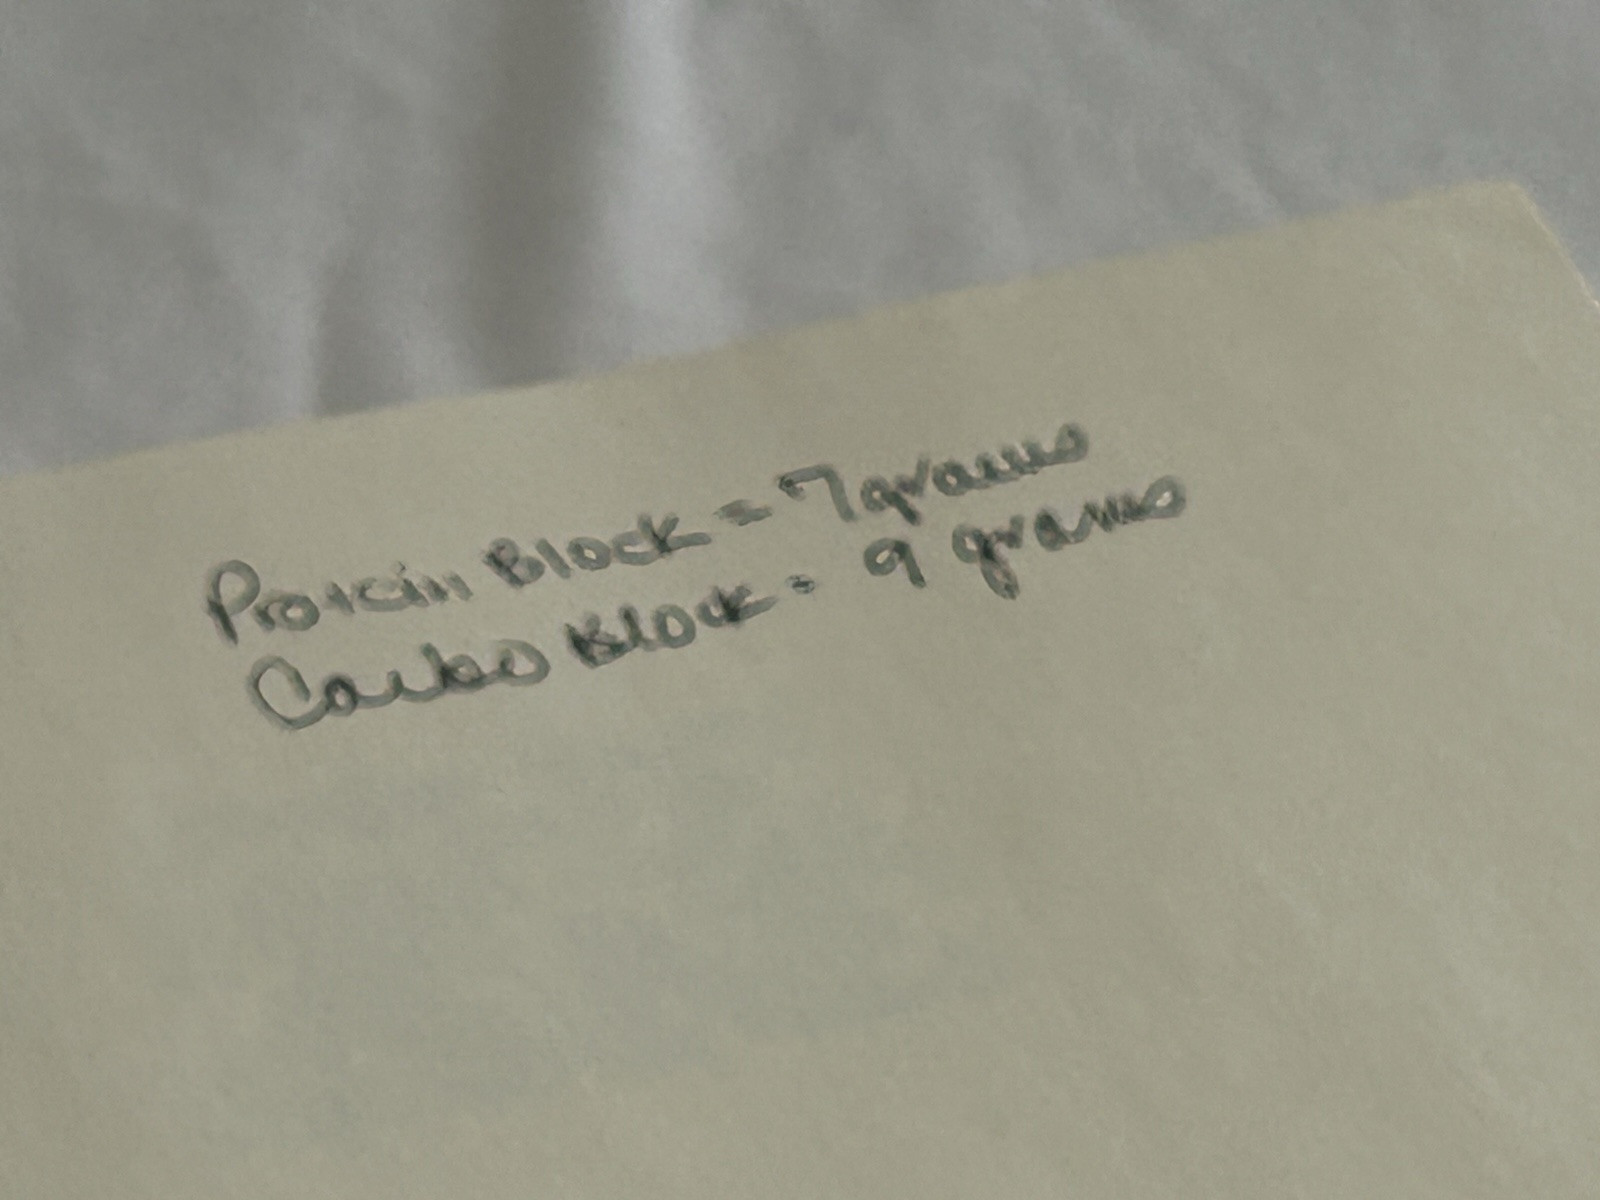 Protein Block = 7 grams
Carbo Block = 9 grams